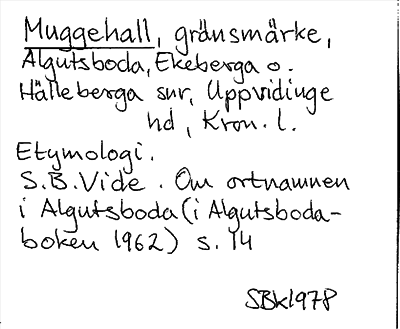 Muggehall, gränsmärke,
Algutsboda, Ekeberga o.
Hälleberga snr, Uppvidinge
hd, Kron. l.
Etymologi.
S.B. Vide. Om ortnamnen
i Algutsboda (i Algutsboda-
boken 1962) s. 14
SBk 1978